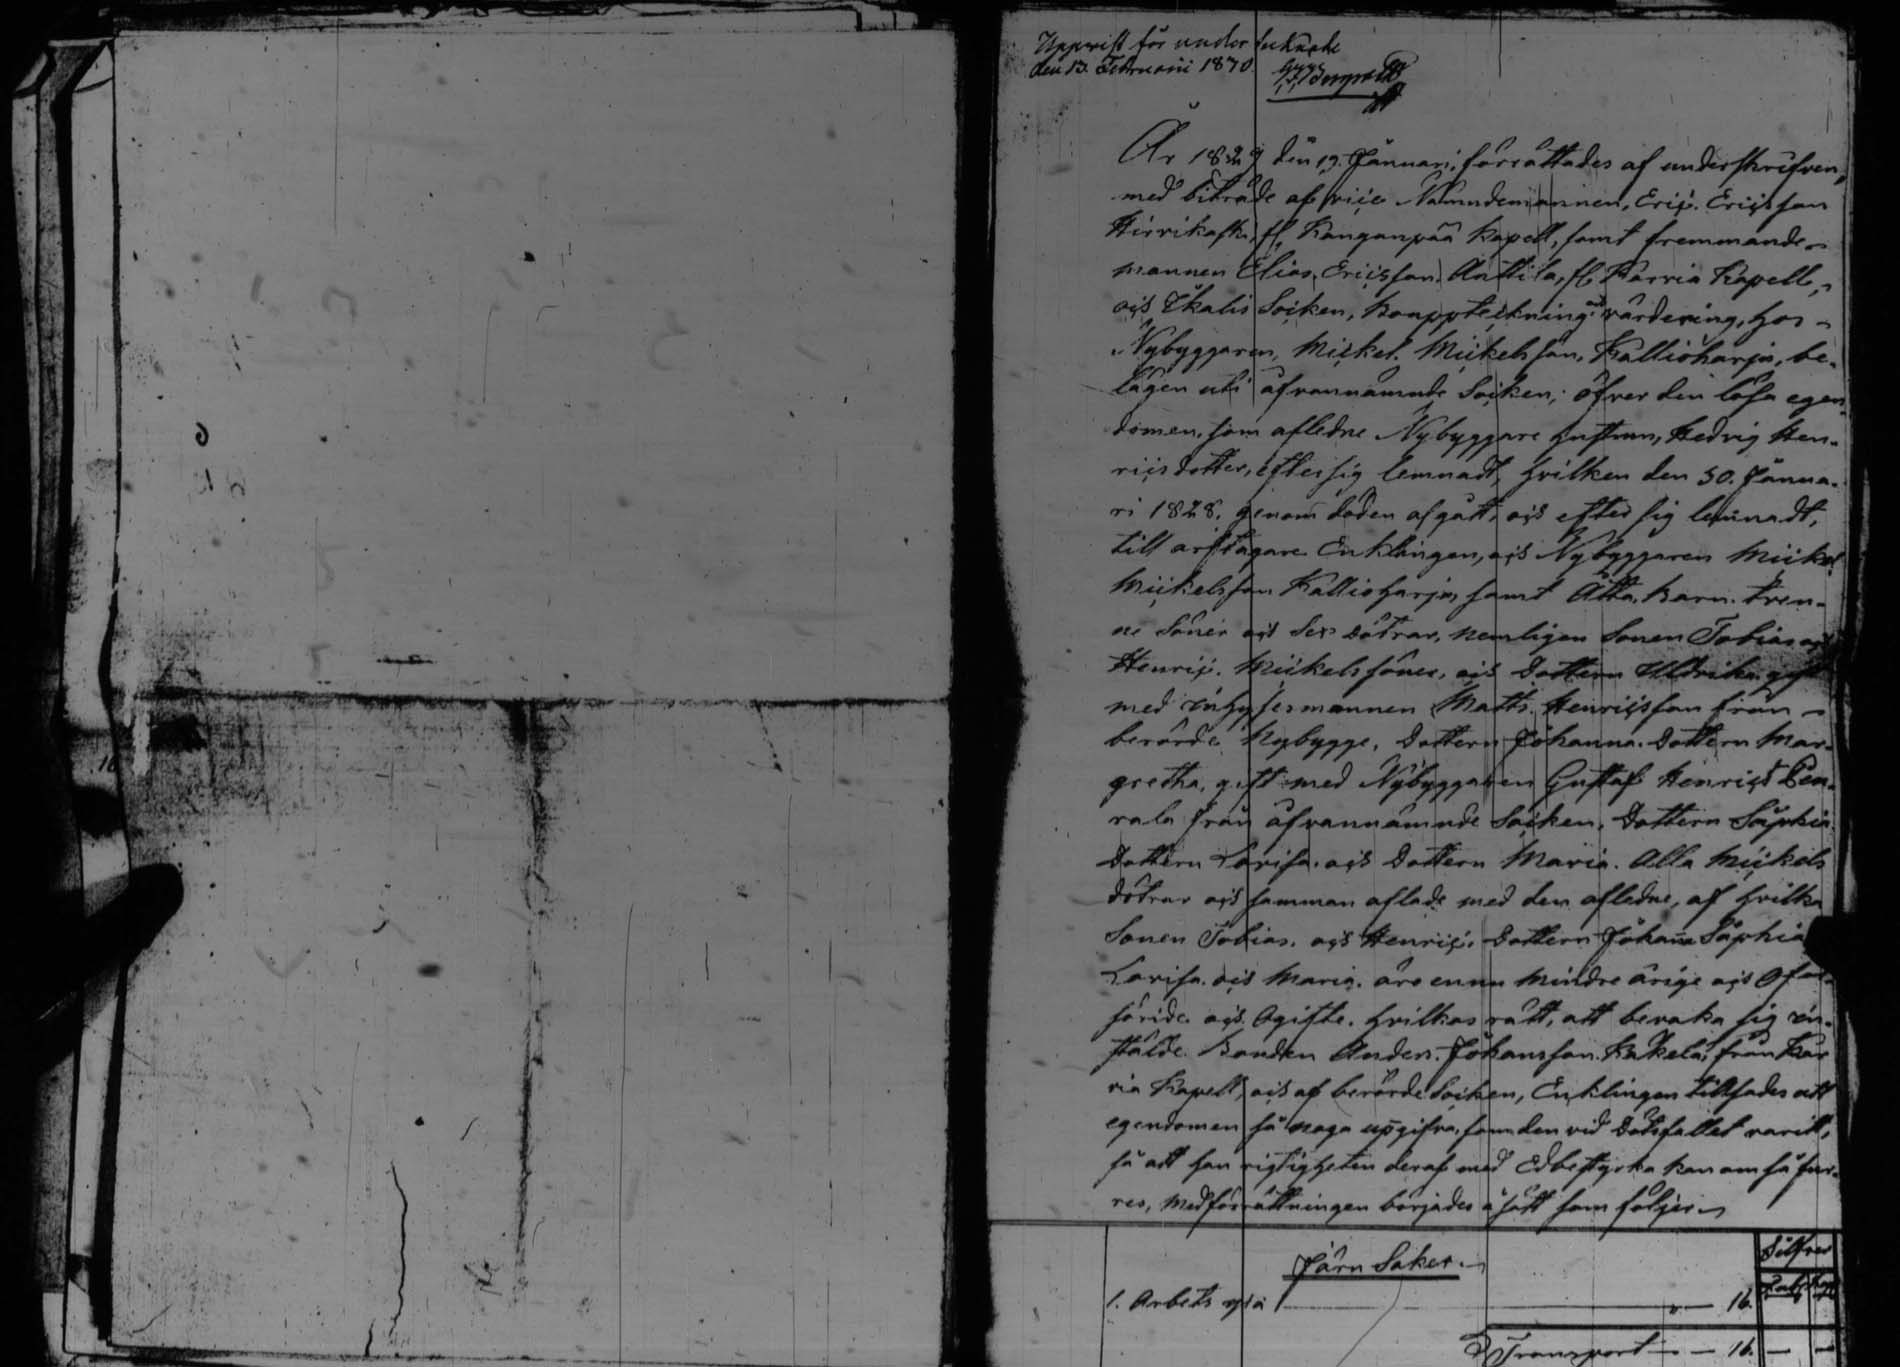 den 13. Februarii 1870
År 1829 den 19. Januari, förrättades af underskrifven,
med biträde af vice Nämndemannen, Eric. Ericsson
Hirvikoski, fr Kanganpää Kapell, samt fremmande
mannen Elias. Ericsson. Anttila, fr Karvia Kapell,
och Ikalis Socken, Bouppteckning och värdering, hos
Nybyggaren, Mickel. Mickelsson, Kallioharju, be-
lägen uti åfvannämnde Socken, öfver den lösa egen-
domen, som afledne Nybyggare hustrun, Hedvig Hen-
ricsdotter, efter sig lemnadt, hvilken den 30. Janua-
ri 1828, genom döden afgått, och efter sig lemnadt,
till arftagare Enklingen, och Nybyggaren Mickel
Mickelsson Kallioharju, samt Åtta, barn. tven-
ne Söner och Sex Dötrar, nemligen Sonen Tobias och
Henric. Mickelsöner, och Dottern Uldrika. gift
med inhysesmannen Matts. Henricsson från
berörde Nybygge, Dottern Johanna. Dottern Mar-
gretha, gift med Nybyggaren Gustaf Henrics
rala från åfvannämnde Socken, Dottern Sophia
Dottern Lovisa. och Dottern Maria. Alla Mickels
dötrar och samman aflade med den afledne, af hvilka
Sonen Tobias. och Henric. Dottern Johanna Sophia
Lovisa. och Maria. äro ennu mindre årige och
och Ogifte. hvilkas rätt, att bevaka sig in-
stälde Bonden Anders. Johansson. från Kar
via Kapell, och af berörde Socken, Enklingen tillsades att
egendomen så noga upgifva, som den vid Dödsfallet varitt,
så att han rigtigheten deraf med Ed bestyrka kan om så
res, medförrättningen börjades å sätt som följer
Järn Saker.
Silfver
Rub Kop
1. Arbets yxa 16.
Transport 16.